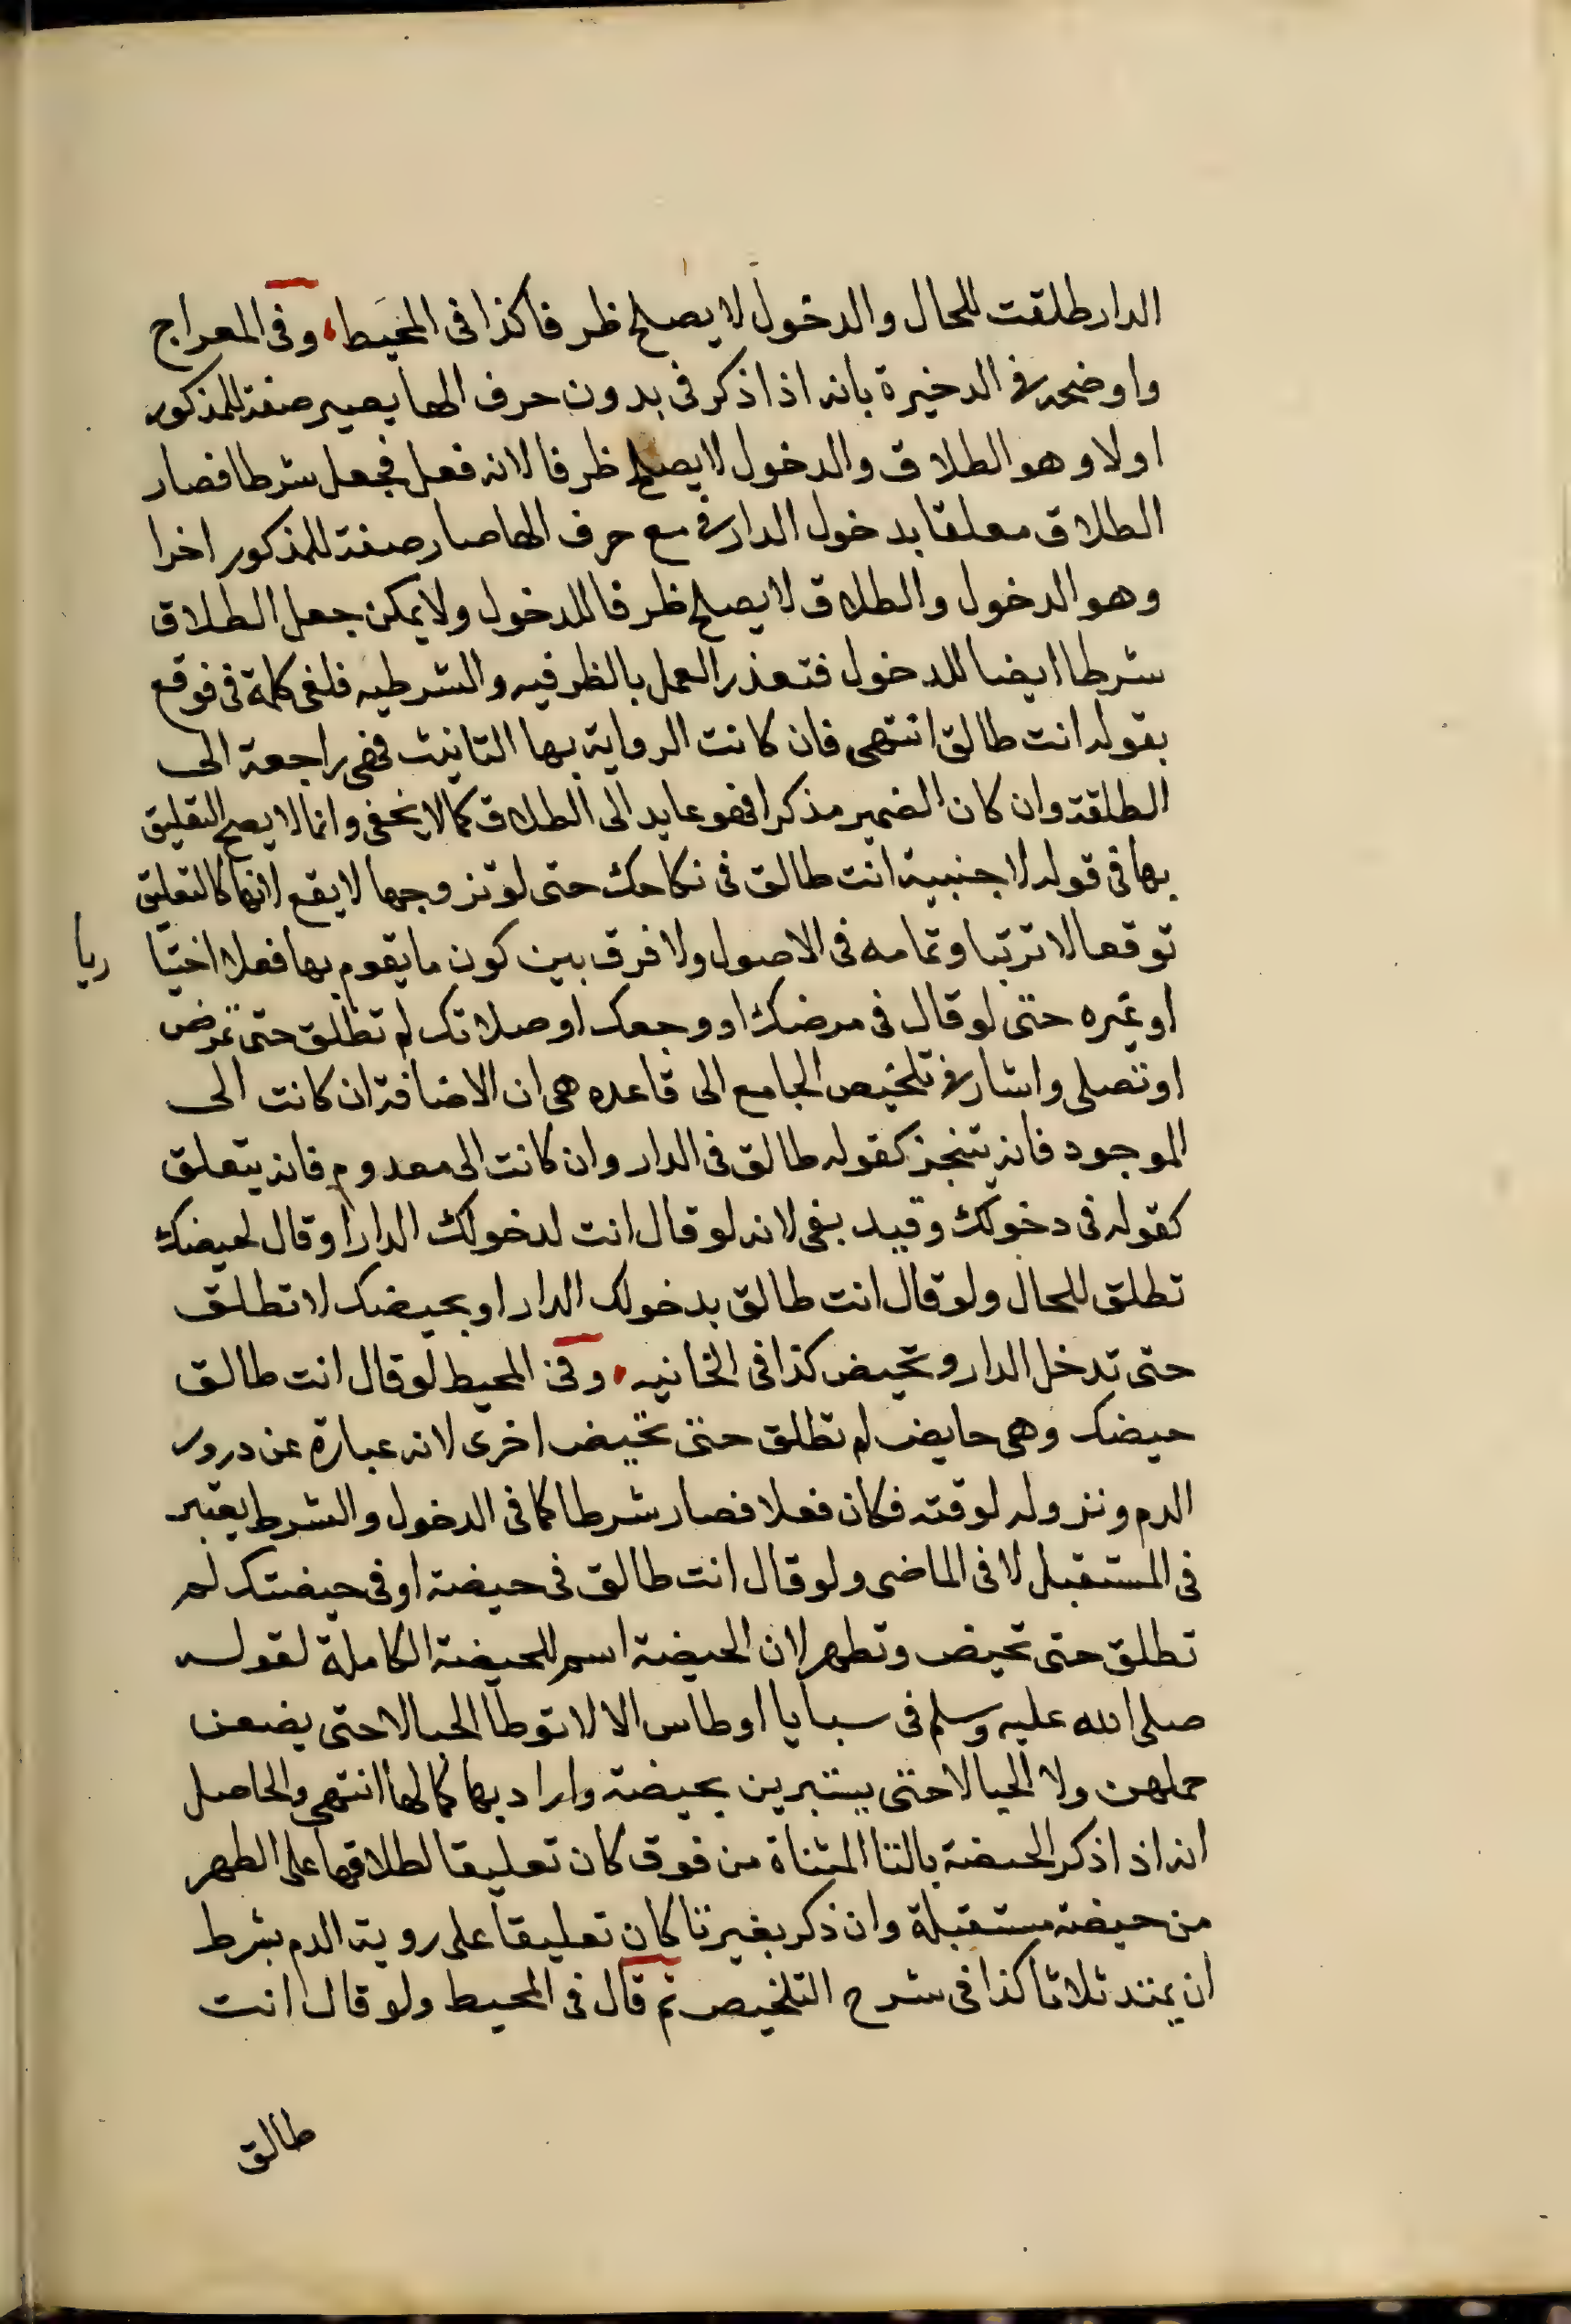 الدار طلقت للحال والدخول لا يصلح ظرفا كذا في المحيط وفي المعراج
واوضحه في الدخيرة بانه اذا ذكر في بدون حرف الها يصير صفة للمذكور
اولا وهو الطلاق والدخول لا يصلح ظرفا لانه فعل فجعل شرطا فصار
الطلاق معلقا بدخول الدار في مع حرف الها صار صفة للمذكور اخرا
وهو الدخول والطلاق لا يصلح ظرفا للدخول ولا يمكن جعل الطلاق
شرطا ايضا للدخول فتعذر العمل بالظرفيه والشرطيه فلغى كلمة في فوقع
بقوله انت طالق انتهى فان كانت الرواية بها التانيث فهي راجعة الى
الطلقة وان كان الضمير مذكرا فهو عايد الى الطلاق كما لا يخفى وانما لا يصح التعليق
بها في قوله لاجنبية انت طالق في نكاحك حتى لو تزوجها لا يقع لانها كالتعليق
توقعا لا ترتبا وتمامه في الاصول ولا فرق بين كون ما يقوم بها فعلا اختيا ريا
او غيره حتى لو قال في مرضك او وجعك او صلاتك لم تطلق حتى تمرض
او تصلي واشار في تلخيص الجامع الى قاعده هي ان الاضافة ان كانت الى
الموجود فانه يتنجز كقوله طالق في الدار وان كانت الى معدوم فانه يتعلق
كقوله في دخولك وقيد بفي لانه لو قال انت لدخولك الدار او قال لحيضك
تطلق للحال ولو قال انت طالق بدخولك الدار او بحيضك لا تطلق
حتى تدخل الدار وتحيض كذا في الخانيه وفي المحيط لو قال انت طالق
حيضك وهي حايض لم تطلق حتى تحيض اخرى لانه عبارة عن درور
الدم ونزوله لوقته فكان فعلا فصار شرطا كما في الدخول والشرط يعتبر
في المستقبل لا في الماضي ولو قال انت طالق في حيضة او في حيضتك لم
تطلق حتى تحيض وتطهر لان الحيضة اسم للحيضة الكاملة لقوله
صلى الله عليه وسلم في سبايا اوطاس الا لا توطا الحبالا حتى يضعن
حملهن ولا الحيالا حتى يستبرين بحيضة واراد بها كمالها انتهى والحاصل
انه اذا ذكر الحيضة بالتا المثناة من فوق كان تعليقا لطلاقها على الطهر
من حيضة مستقبلة وان ذكر بغير تا كان تعليقا على روية الدم بشرط
ان يمتد ثلاثا كذا في شرح التلخيص ثم قال في المحيط ولو قال انت
طالق